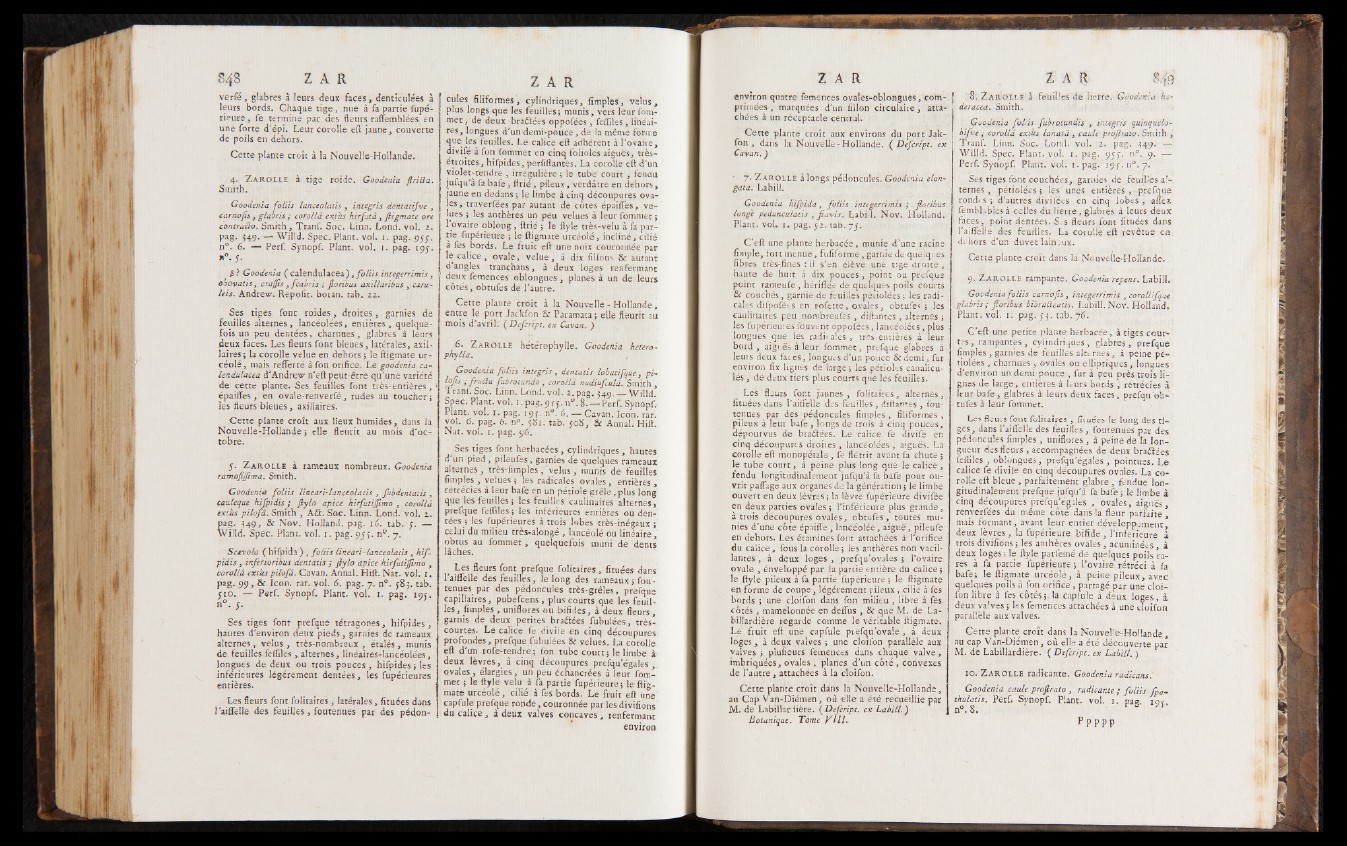 848 Z A R
verfé, glabres à leurs deux faces, denticulées à
leurs bords. Chaque tige, nue à fa partie fupé-
rieure, fe termine par des fleurs raffemblées en
une forte d'épi. Leur corolle eft jaune, couverte
de poils en dehors.
Cette plante croît à la Nouvelle-Hollande.
4. ZAROLLE à tige roide. Goodenia ftricta.
Smith.
Goodenia foliis lanceolatis, integris dentatifve,
carnofis, glabris; corollâ extùs hirfutâ, ftigmate ore
contracto. Smith, Tranf. Soc. Linn. Lond. vol. 2.
pag. 349. — Willd. Spec. Plant. vol. 1. pag. 955.
n°. 6. — Perf. Synopf. Plant. vol. 1. pag. 195.
n°. 5.
β? Goodenia (calendulacea), foliis integerrimis,
obovatis, craffis, fcabris; floribus axillaribus, cæru-
leis. Andrew. Repofit. botan. tab. 22.
Ses tiges font roides, droites, garnies de
feuilles alternes, lancéolées, entières, quelque-
fois un peu dentées, charnues, glabres à leurs
deux faces. Les fleurs font bleues, latérales, axil-
laires; la corolle velue en dehors; le ftigmate ur-
céolé, mais refferré à fon orifice. Le goodenia ca-
lendulacea d'Andrew n'eft peut-être qu'une variété
de cette plante. Ses feuilles font très-entières,
épaiffes, en ovale-renverfé, rudes au toucher;
les fleurs bleues, axillaires.
Cette plante croît aux lieux humides, dans la
Nouvelle-Hollande; elle fleurit au mois d'oc-
tobre.
5. ZAROLLE à rameaux nombreux. Goodenia
ramofiffima. Smith.
Goodenia foliis lineari-lanceolatis, fubdentatis,
cauleque hifpidis; ftylo apice hirfutiffimo, corollâ
extùs pilofâ. Smith, Act. Soc. Linn. Lond. vol. 2.
pag. 349, & Nov. Holland. pag. 16. tab. 5. —
Willd. Spec. Plant. vol. 1. pag. 955. n°. 7.
Scævola (hifpida), foliis lineari-lanceolatis, hif-
pidis, inferioribus dentatis; ftylo apice hirfutiffimo,
corollâ extùs pilofâ. Cavan. Annal. Hift. Nat. vol. 1.
pag. 99, & Icon. rar. vol. 6. pag. 7. n°. 583. tab.
510. — Perf. Synopf. Plant. vol. 1. pag. 195.
n°. 5.
Ses tiges font prefque tétragones, hifpides,
hautes d'environ deux pieds, garnies de rameaux
alternes, velus, très-nombreux, étalés, munis
de feuilles feffiles, alternes, linéaires-lancéolées,
longues de deux ou trois pouces, hifpides; les
inférieures légèrement dentées, les fupérieures
entières.
Les fleurs font folitaires, latérales, fituées dans
l'aiffelle des feuilles, foutenues par des pédon-
Z A R
cules filiformes, cylindriques, fimples, velus,
plus longs que les feuilles; munis, vers leur fom-
met, de deux bractées oppofées, feffiles, linéai-
res, longues d'un demi-pouce, de la même forme
que les feuilles. Le calice eft adhérent à l'ovaire,
divifé à fon fommet en cinq folioles aiguës, très-
étroites, hifpides, perfiftantes. La corolle eft d'un
violet-tendre, irrégulière; le tube court, fendu
jufqu'à fa bafe, ftrié, pileux, verdâtre en dehors,
jaune en dedans; le limbe à cinq découpures ova-
les, traverfées par autant de côtes épaiffes, ve-
lues; les anthères un peu velues à leur fommet;
l'ovaire oblong, ftrié; le ftyle très-velu à fa par-
tie fupérieure; le ftigmate urcéolé, incliné, cilié
à fes bords. Le fruit eft une noix couronnée par
le calice, ovale, velue, à dix fillons & autant
d'angles tranchans, à deux loges renfermant
deux femences oblongues, planes à un de leurs
côtés, obtufes de l'autre.
Cette plante croît à la Nouvelle-Hollande,
entre le port Jackfon & Paramata; elle fleurit au
mois d'avril. (Defcript. ex Cavan.)
6. ZAROLLE hétérophylle. Goodenia hetero-
phylla.
Goodenia foliis integris, dentatis lobatifque, pi-
lofis, fructu fubrotundo, corollâ nudiufculâ. Smith,
Tranf. Soc. Linn. Lond. vol. 2. pag. 349. — Willd.
Spec. Plant. vol. 1. pag. 955. n°. 8. — Perf. Synopf.
Plant. vol. 1. pag. 195. n°. 6. — Cavan. Icon. rar.
vol. 6. pag. 6. n°. 581. tab. 508, & Annal. Hift.
Nat. vol. 1. pag. 96.
Ses tiges font herbacées, cylindriques, hautes
d'un pied, pileufes, garnies de quelques rameaux
alternes, très-fimples, velus, munis de feuilles
fimples, velues; les radicales ovales, entières,
rétrécies à leur bafe en un pétiole grêle, plus long
que les feuilles; les feuilles caulinaires alternes,
prefque feffiles; les inférieures entières ou den-
tées; les fupérieures à trois lobes très-inégaux;
celui du milieu très-alongé, lancéolé ou linéaire,
obtus au fommet, quelquefois muni de dents
lâches.
Les fleurs font prefque folitaires, fituées dans
l'aiffelle des feuilles, le long des rameaux; fou-
tenues par des pédoncules très-grêles, prefque
capillaires, pubefcens, plus courts que les feuil-
les, fimples, uniflores ou bifides, à deux fleurs,
garnis de deux petites bractées fubulées, très-
courtes. Le calice fe divife en cinq découpures
profondes, prefque fubulées & velues. La corolle
eft d'un rofe-tendre; fon tube court; le limbe à
deux lèvres, à cinq découpures prefqu'égales,
ovales, élargies, un peu échancrées à leur fom-
met; le ftyle velu à fa partie fupérieure; le ftig-
mate urcéolé, cilié à fes bords. Le fruit eft une
capfule prefque ronde, couronnée par les divifions
du calice, à deux valves concaves, renfermant
environ
Z A R
environ quatre femences ovales-oblongues, com-
primées, marquées d'un fillon circulaire, atta-
chées à un réceptacle central.
Cette plante croît aux environs du port Jak-
fon, dans la Nouvelle-Hollande. (Defcript. ex
Cavan.)
7. ZAROLLE à longs pédoncules. Goodenia elon-
gata. Labill.
Goodenia hifpida, foliis integerrimis; floribus
longè pedunculatis, flavis. Labill. Nov. Holland.
Plant. vol. 1. pag. 52. tab. 75.
C'eft une plante herbacée, munie d'une racine
fimple, fort menue, fufiforme, garnie de quelques
fibres très-fines: il s'en élève une tige droite,
haute de huit à dix pouces, point ou prefque
point rameufe, hériffée de quelques poils courts
& couchés, garnie de feuilles pétiolées; les radi-
cales difpofées en rofette, ovales, obtufes; les
caulinaires peu nombreufes, diftantes, alternes;
les fupérieures fouvent oppofées, lancéolées, plus
longues que les radicales, très entières à leur
bord, aiguës à leur fommet, prefque glabres à
leurs deux faces, longues d'un pouce & demi, fur
environ fix lignes de large; les pétioles canalicu-
lés, de deux tiers plus courts que les feuilles.
Les fleurs font jaunes, folitaires, alternes,
fituées dans l'aiffelle des feuilles, diftantes, fou-
tenues par des pédoncules fimples, filiformes,
pileux à leur bafe, longs de trois à cinq pouces,
dépourvus de bractées. Le calice fe divife en
cinq découpures droites, lancéolées, aiguës. La
corolle eft monopétale, fe flétrit avant fa chute;
le tube court, à peine plus long que le calice,
fendu longitudinalement jufqu'à fa bafe pour ou-
vrir paffage aux organes de la génération; le limbe
ouvert en deux lèvres; la lèvre fupérieure divifée
en deux parties ovales; l'inférieure plus grande,
à trois découpures ovales, obtufes, toutes mu-
nies d'une côte épaiffe, lancéolée, aiguë, pileufe
en dehors. Les étamines font attachées à l'orifice
du calice, fous la corolle; les anthères non vacil-
lantes, à deux loges, prefqu'ovales; l'ovaire
ovale, enveloppé par la partie entière du calice;
le ftyle pileux à fa partie fupérieure; le ftigmate
en forme de coupe, légèrement pileux, cilié à fes
bords; une cloifon dans fon milieu, libre à fes
côtés, mamelonnée en deffus, & que M. de La-
billardière regarde comme le véritable ftigmate.
Le fruit eft une capfule prefqu'ovale, à deux
loges, à deux valves; une cloifon parallèle aux
valves; plufieurs femences dans chaque valve,
imbriquées, ovales, planes d'un côté, convexes
de l'autre, attachées à la cloifon.
Cette plante croît dans la Nouvelle-Hollande,
au Cap Van-Diémen, où elle a été recueillie par
M. de Labillardière. (Defcript. ex Labill.)
Botanique. Tome VIII.
Z A R 849
8. ZAROLLE à feuilles de lierre. Goodenia he-
deracea. Smith.
Goodenia foliis fubrotundis, integris quinquelo-
bifve, corollâ extùs lanatâ, caule proftrato. Smith,
Tranf. Linn. Soc. Lond. vol. 2. pag. 349. —
Willd. Spec. Plant. vol. 1. pag. 955. n°. 9. —
Perf. Synopf. Plant. vol. 1. pag. 195. n°. 7.
Ses tiges font couchées, garnies de feuilles al-
ternes, pétiolées; les unes entières, prefque
rondes; d'autres divifées en cinq lobes, affez
femblables à celles du lierre, glabres à leurs deux
faces, point dentées. Ses fleurs font fituées dans
l'aiffelle des feuilles. La corolle eft revêtue en
dehors d'un duvet laineux.
Cette plante croît dans la Nouvelle-Hollande.
9. ZAROLLE rampante. Goodenia repens. Labill.
Goodenia foliis carnofis, integerrimis, corollifque
glabris; floribus bibracteatis. Labill. Nov. Holland.
Plant. vol. 1. pag. 53. tab. 76.
C'eft une petite plante herbacée, à tiges cour-
tes, rampantes, cylindriques, glabres, prefque
fimples, garnies de feuilles alternes, à peine pé-
tiolées, charnues, ovales ou elliptiques, longues
d'environ un demi-pouce, fur à peu près trois li-
gnes de large, entières à leurs bords, rétrécies à
leur bafe, glabres à leurs deux faces, prefqu'ob-
tufes à leur fommet.
Les fleurs font folitaires, fituées le long des ti-
ges, dans l'aiffelle des feuilles, foutenues par des
pédoncules fimples, uniflores, à peine de la lon-
gueur des fleurs, accompagnées de deux bractées
feffiles, oblongues, prefqu'égales, pointues. Le
calice fe divife en cinq découpures ovales. La co-
rolle eft bleue, parfaitement glabre, fendue lon-
gitudinalement prefque jufqu'à fa bafe; le limbe à
cinq découpures prefqu'égales, ovales, aiguës,
renverfées du même côté dans la fleur parfaite,
mais formant, avant leur entier développement,
deux lèvres, la fupérieure bifide, l'inférieure à
trois divifions; les anthères ovales, acuminées, à
deux loges; le ftyle parfemé de quelques poils ra-
res à fa partie fupérieure; l'ovaire rétréci à fa
bafe; le ftigmate urcéolé, à peine pileux, avec
quelques poils à fon orifice, partagé par une cloi-
fon libre à fes côtés; la capfule à deux loges, à
deux valves; les femences attachées à une cloifon
parallèle aux valves.
Cette plante croît dans la Nouvelle-Hollande,
au cap Van-Diémen, où elle a été découverte par
M. de Labillardière. (Defcript. ex Labill.)
10. ZAROLLE radicante. Goodenia radicans.
Goodenia caule proftrato, radicante; foliis fpa-
thulatis. Perf. Synopf. Plant. vol. 1. pag. 195.
n°. 8.
P p p p p